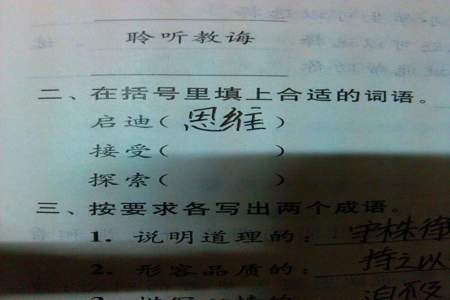 聆听教诲
二、在括号里填上合适的词语。
启迪（思维）
接受（　　）
探索（　　）
三、按要求各写出两个成语。
1. 说明道理的：守株待
2. 形容品质的：持之以
3.